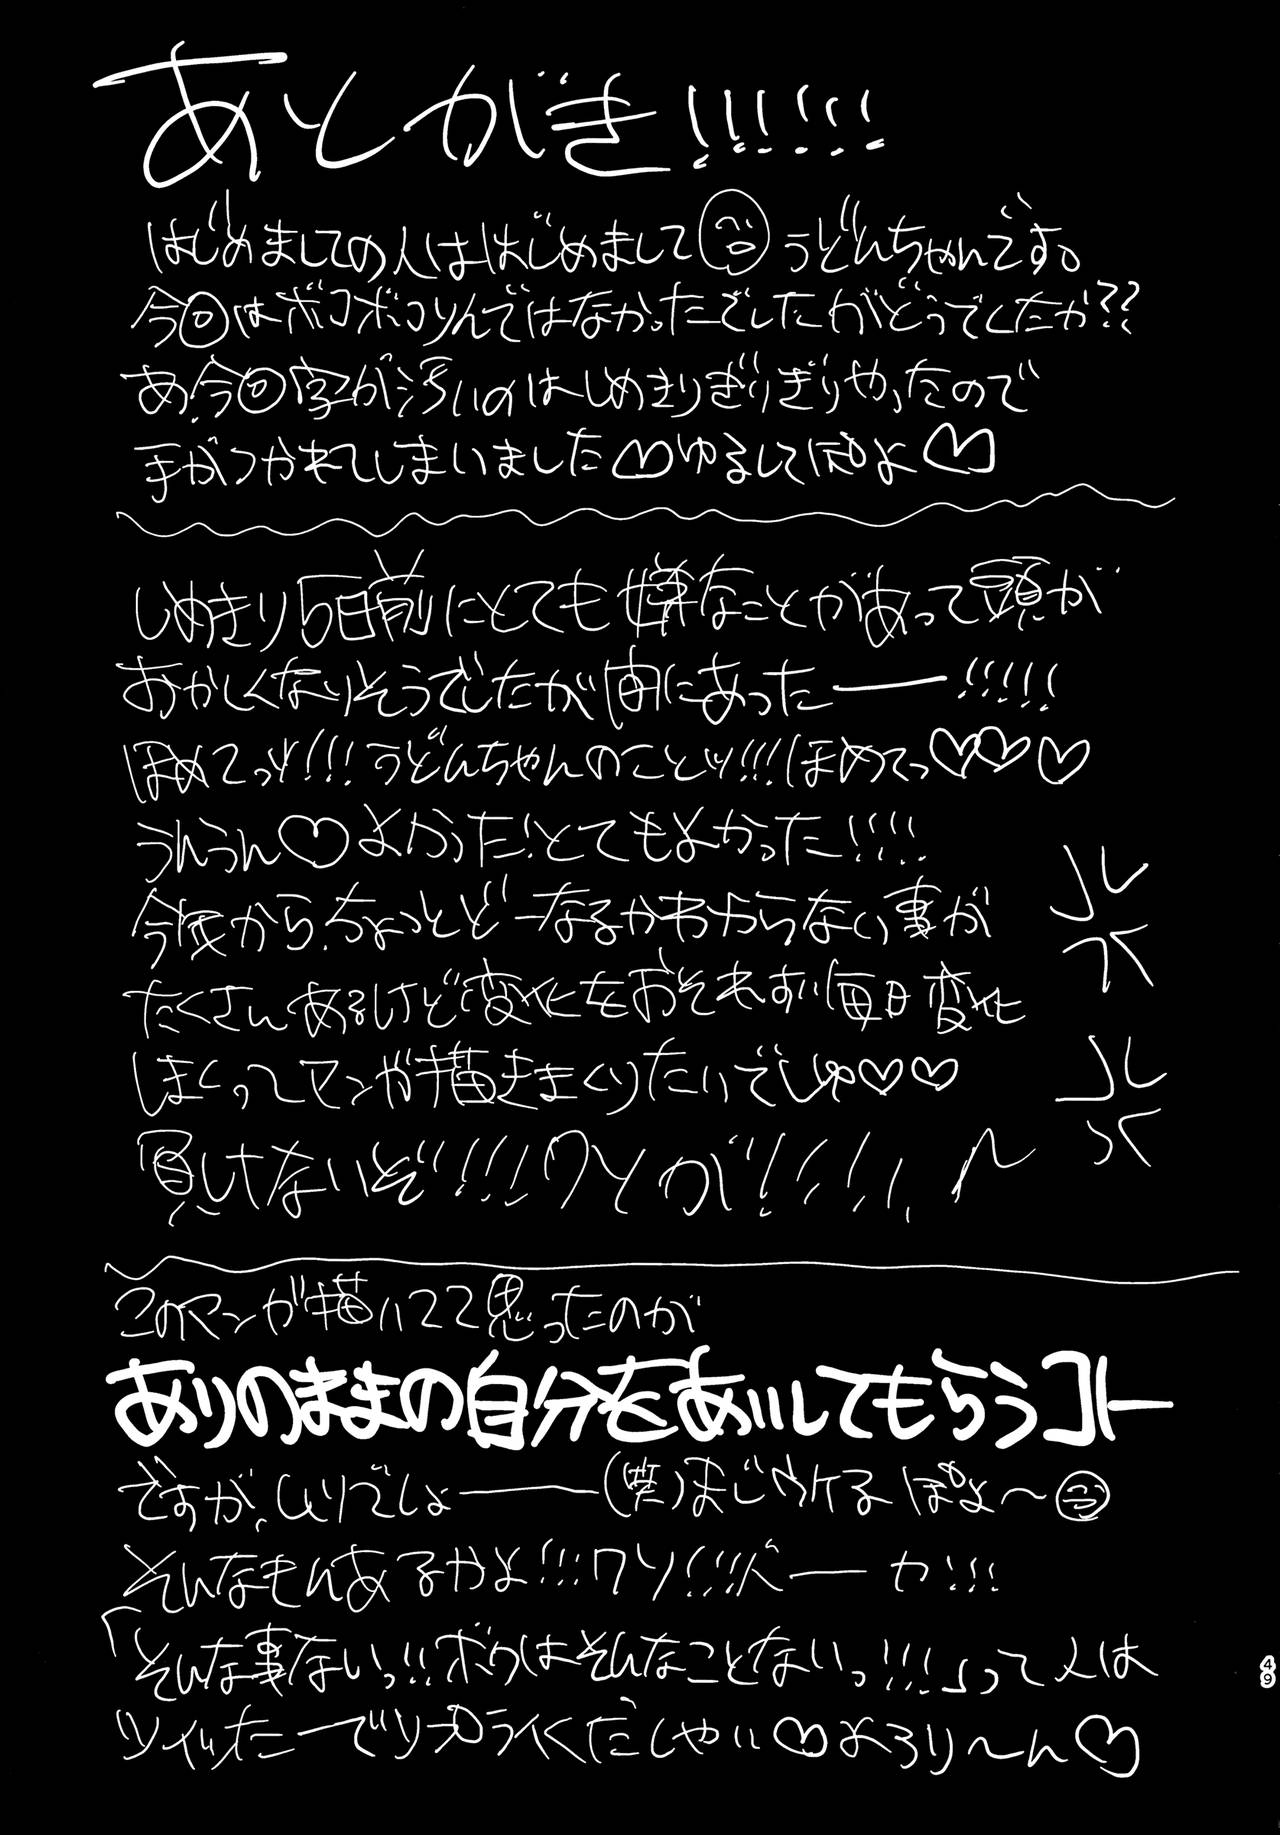 あとがき!!!!!!
はじめましての人ははじめまして うどんちゃんです。
今回はボコボコりんではなかったでしたがどうでしたか??
あ、今回字が汚いのはしめきりぎりぎりやったので
手がつかれてしまいました♡ゆるしてぽよ♡
しめきり5日前にとても嫌なことがあって頭が
おかしくなりそうでしたが間にあったーー!!!!!
ほめてっッ!!!うどんちゃんのことッ!!!ほめてっ♡♡♡
うんうん♡よかった!とてもよかった!!!!
今後から、ちょっとどーなるかわからない事が
たくさんあるけど変化をおそれずに毎日変化
しまくってマンガ描きまくりたいでしゅ♡♡
負けないぞ!!!!クソが!!!!!
このマンガ描いてて思ったのが
ありのままの自分をあいしてもらうコト
ですが、ムリでしょーーー(笑)まじウケるぽよ〜
そんなもんあるかよ!!!クソ!!!バーーカ!!!
「そんな事ないっ!!ボクはそんなことないっ!!!」って人は
ツイッターでリプライくだしゃい♡よろり〜ん♡
49